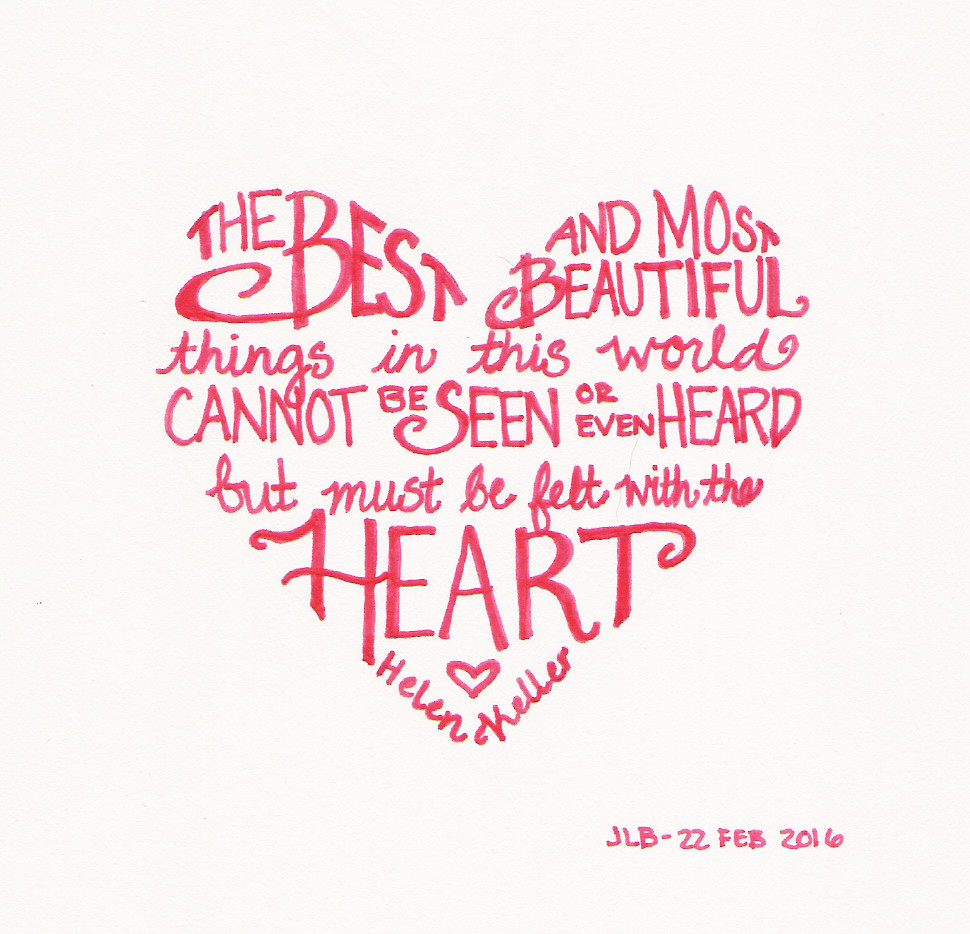 THE BEST AND MOST
BEAUTIFUL
things in this world
CANNOT BE SEEN OR EVEN HEARD
but must be felt with the
HEART
Helen Keller
JLB-22 FEB 2016